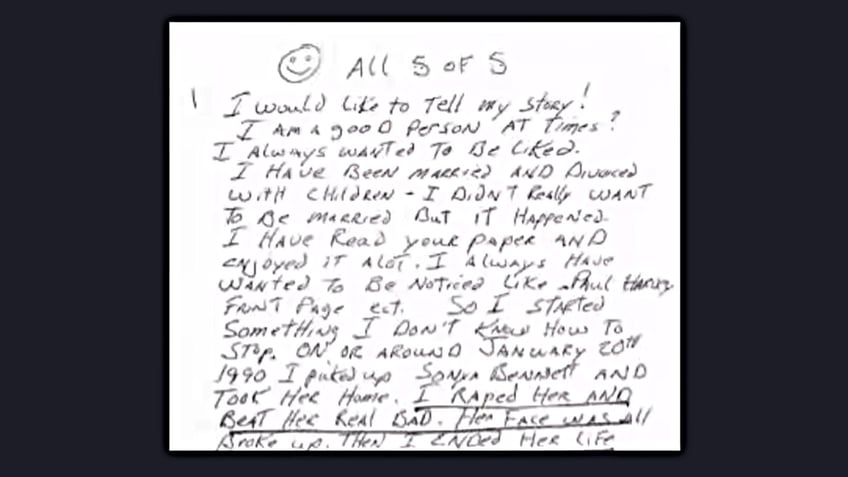 All 5 OF 5
1 I would Like to Tell my Story!
I Am A gooD Person AT Times?
I Always wanted To Be Liked.
I Have Been married AND Divorced
with CHildren - I DiDN'T Really WANT
To Be married But iT Happened.
I Have Read your paper AND
enjoyed iT Alot. I Always Have
wanted To Be Noticed Like Paul Harvey
Front Page ect. So I Started
Something I DON'T Know How To
Stop. ON OR AROUND January 20th
1990 I picked up Sonya Bennett AND
Took Her Home. I Raped Her AND
Beat Her Real Bad. Her Face was All
Broke up. THen I ENDed Her Life